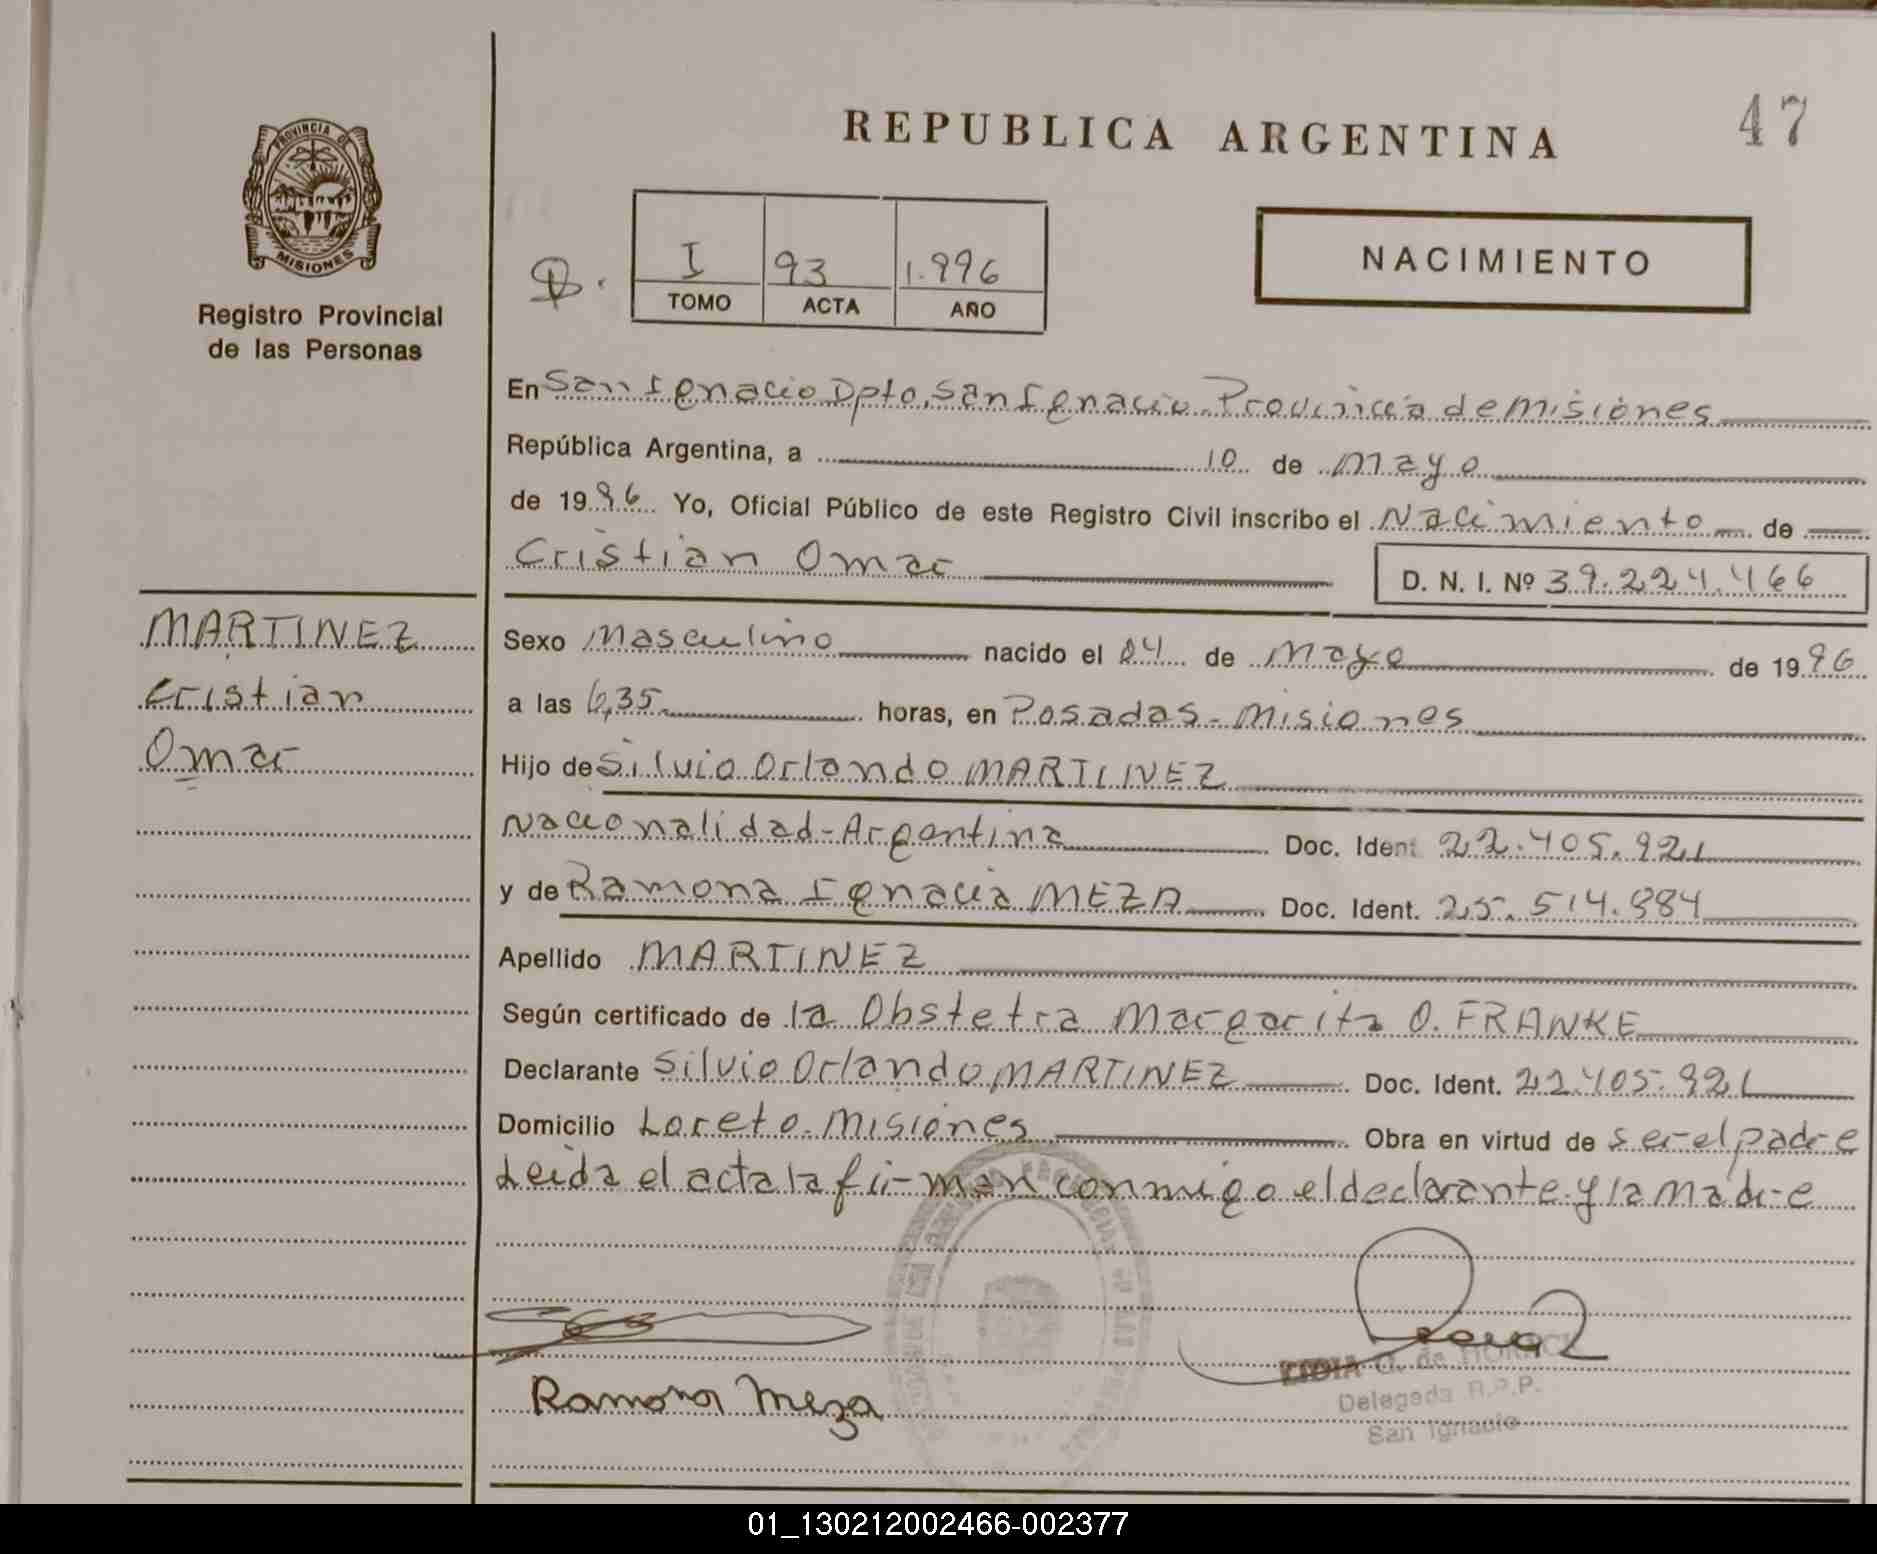 47
REPUBLICA ARGENTINA
PROVINCIA DE
MISIONES
Registro Provincial
de las Personas
I 93 1.996
TOMO ACTA AÑO
NACIMIENTO
En San Ignacio Dpto. San Ignacio Provincia de Misiones
República Argentina, a 10 de Mayo
de 1996 Yo, Oficial Público de este Registro Civil inscribo el Nacimiento de
Cristian Omar D. N. I. Nº 39.224.466
MARTINEZ
Cristian
Omar
Sexo Masculino nacido el 04 de Mayo de 1996
a las 6,35 horas, en Posadas - Misiones
Hijo de Silvio Orlando MARTINEZ
Nacionalidad - Argentina Doc. Ident. 22.405.921
y de Ramona Ignacia MEZA Doc. Ident. 25.514.884
Apellido MARTINEZ
Según certificado de la Obstetra Margarita O. FRANKE
Declarante Silvio Orlando MARTINEZ Doc. Ident. 22.405.921
Domicilio Loreto - Misiones Obra en virtud de ser el padre
Leida el acta la firman conmigo el declarante y la Madre
Ramona Meza
LIDIA G. de
Delegada R.P.P.
San Ignacio
01_130212002466-002377